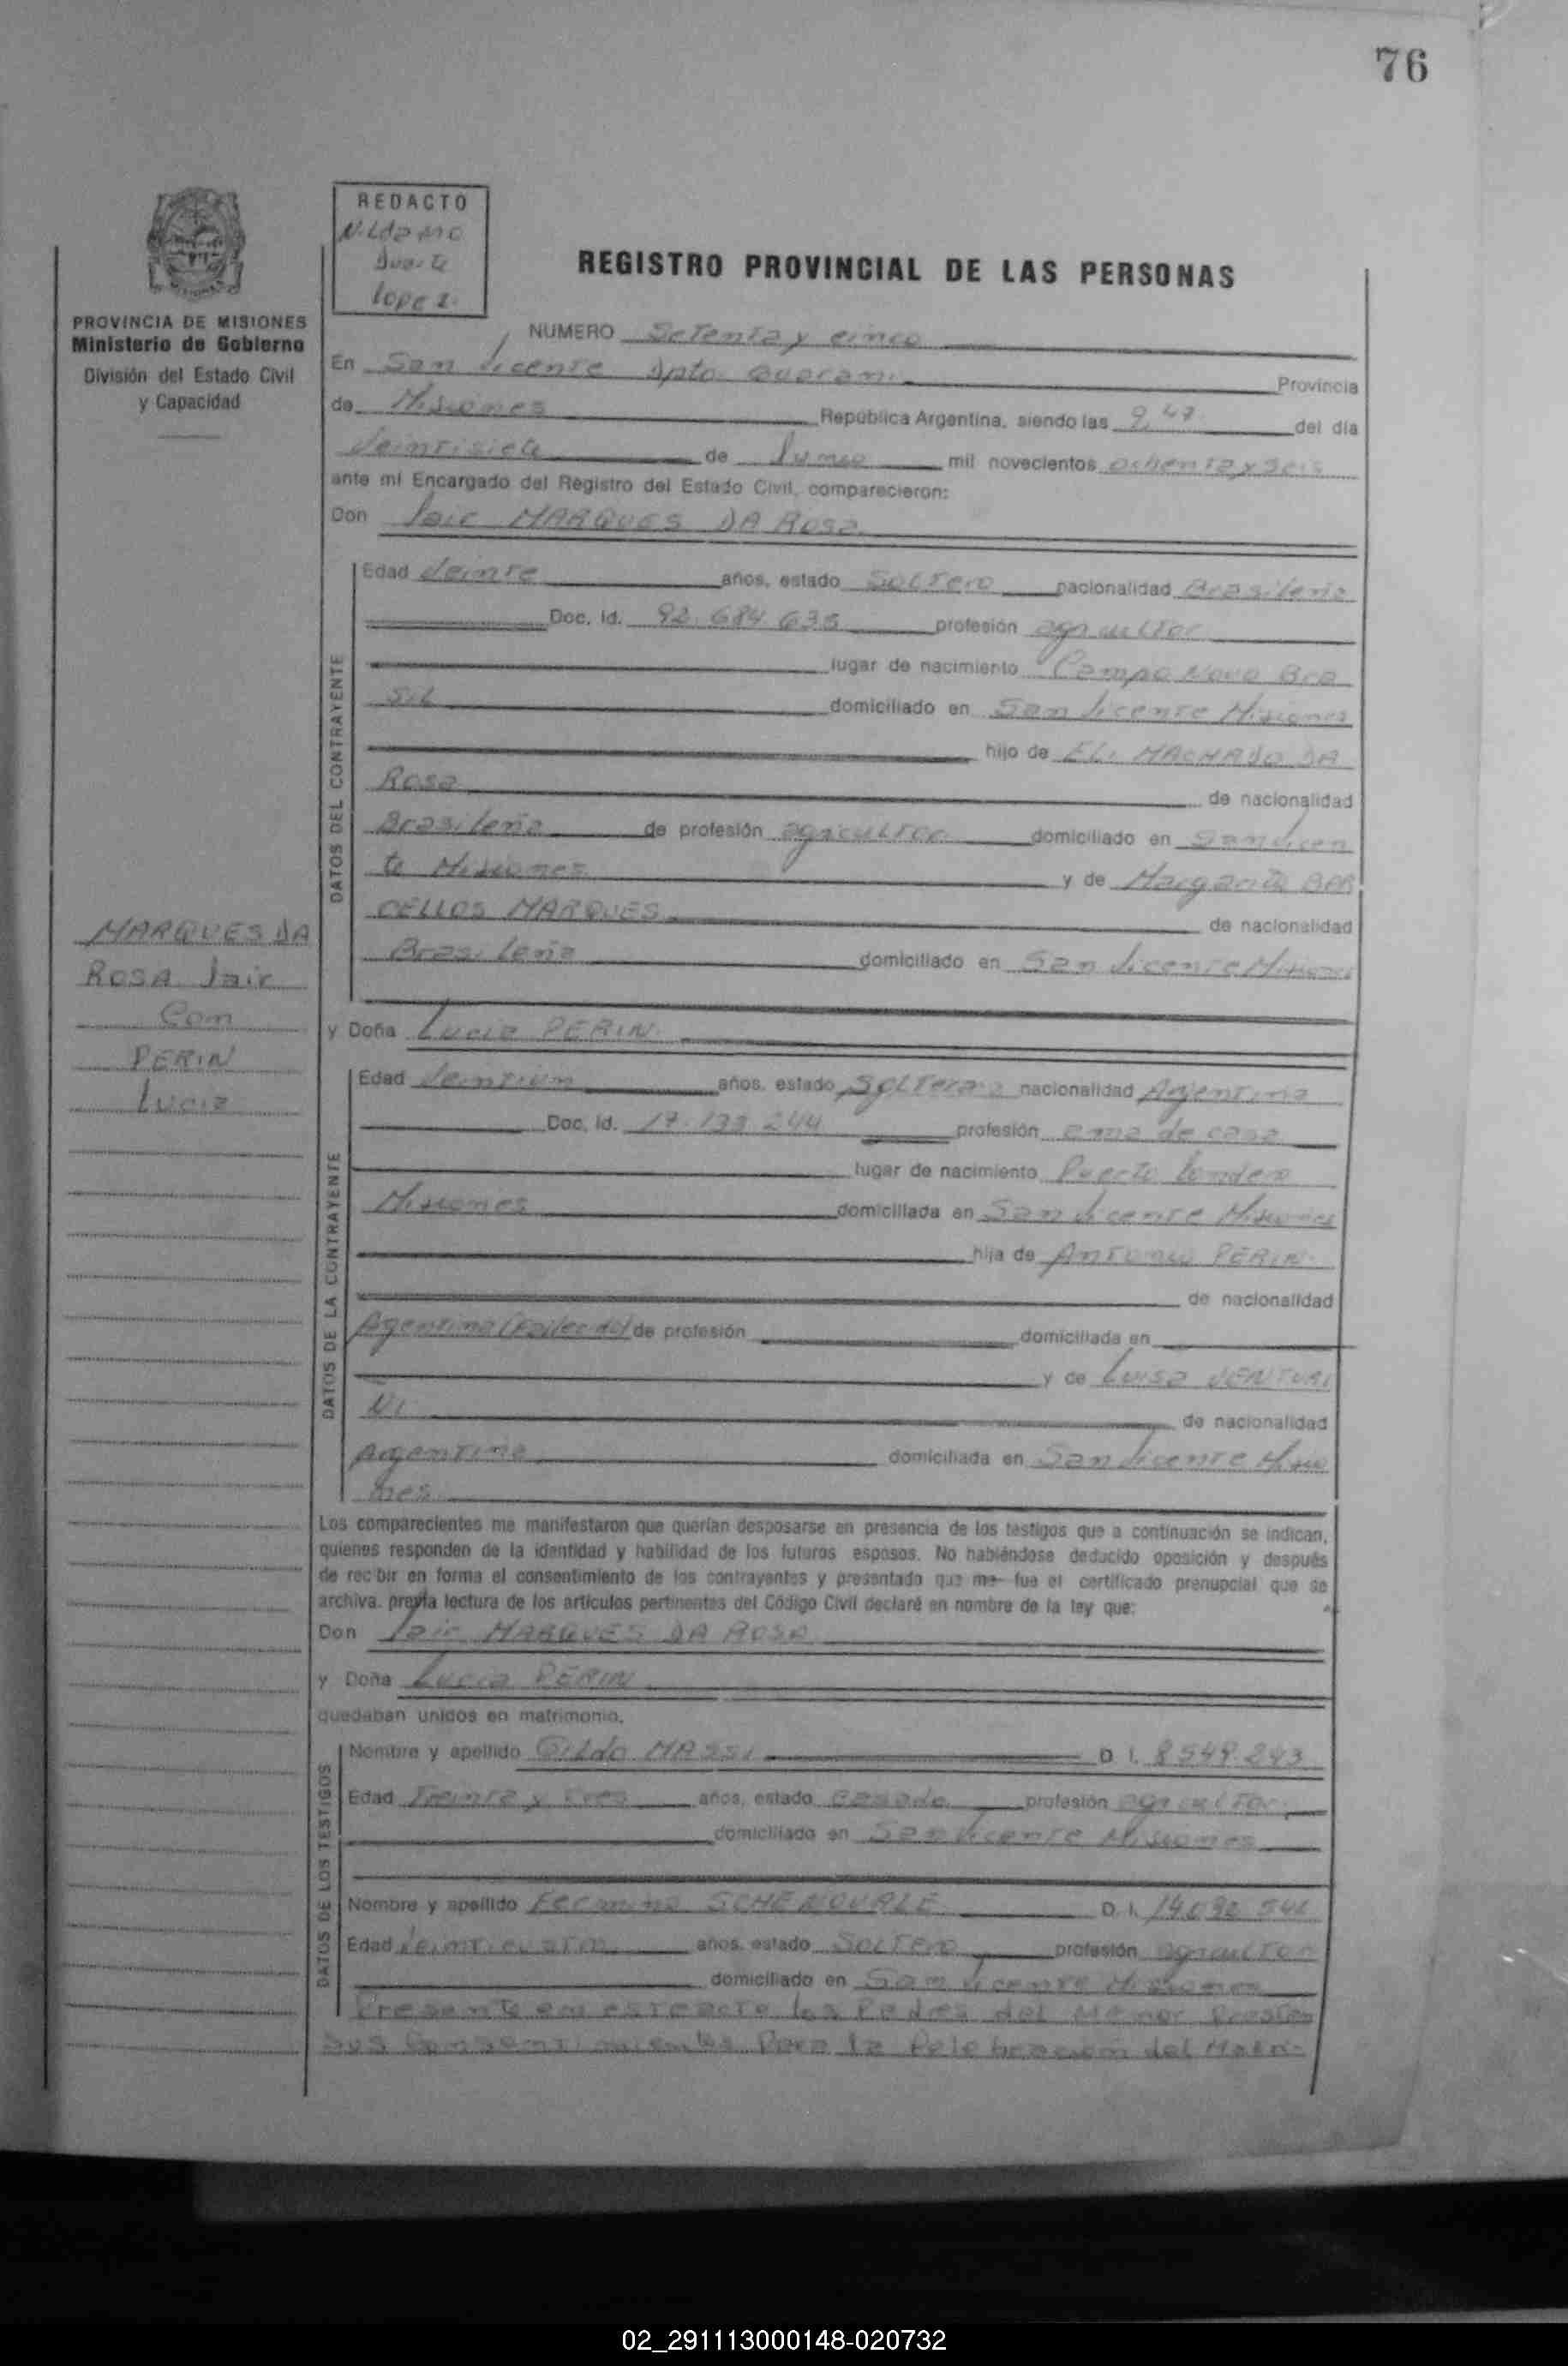 76
REDACTO
Duarte
Lopez.
PROVINCIA DE MISIONES
Ministerio de Gobierno
División del Estado Civil
y Capacidad
REGISTRO PROVINCIAL DE LAS PERSONAS
NUMERO Setenta y cinco
En San Vicente Dpto. Guarani Provincia
de Misiones República Argentina, siendo las 9,47 del día
Veintisiete de Junio mil novecientos ochenta y seis
ante mi Encargado del Registro del Estado Civil, comparecieron:
Don Jair MARQUES DA Rosa
DATOS DEL CONTRAYENTE
Edad Veinte años, estado Soltero nacionalidad Brasileña
Doc. Id. 92.684.635 profesión agricultor
lugar de nacimiento Campo Novo Bra
sil domiciliado en San Vicente Misiones
hijo de ELI MACHADO DA
Rosa de nacionalidad
Brasileña de profesión agricultor domiciliado en San Vicen
te Misiones y de Margarita BAR
CELLOS MARQUES de nacionalidad
Brasileña domiciliado en San Vicente Misiones
MARQUES DA
ROSA Jair
Con
PERIN
Lucia
y Doña Lucia PERIN
DATOS DE LA CONTRAYENTE
Edad Veintiun años, estado Soltera nacionalidad Argentina
Doc. Id. 17.133.244 profesión ama de casa
lugar de nacimiento Puerto Londero
Misiones domiciliada en San Vicente Misiones
hija de Antonio PERIN
de nacionalidad
Argentina (Fallecido) de profesión domiciliada en
y de Luisa VENTURI
NI de nacionalidad
Argentina domiciliada en San Vicente Misio
nes
Los comparecientes me manifestaron que querían desposarse en presencia de los testigos que a continuación se indican,
quienes responden de la identidad y habilidad de los futuros esposos. No habiéndose deducido oposición y después
de recibir en forma el consentimiento de los contrayentes y presentado que me fue el certificado prenupcial que se
archiva. previa lectura de los artículos pertinentes del Código Civil declaré en nombre de la ley que:
Don Jair MARQUES DA ROSA
y Doña Lucia PERIN
quedaban unidos en matrimonio.
DATOS DE LOS TESTIGOS
Nombre y apellido Gildo MASSI D. I. 8.549.243
Edad Treinta y tres años, estado Casado profesión agricultor
domiciliado en San Vicente Misiones
Nombre y apellido Fermino D. I.
Edad Veinticuatro años, estado Soltero profesión agricultor
domiciliado en San Vicente Misiones
Presente en este acto los Padres del Menor Prestan
sus Consentimientos Para la Celebracion del Matri-
02_291113000148-020732